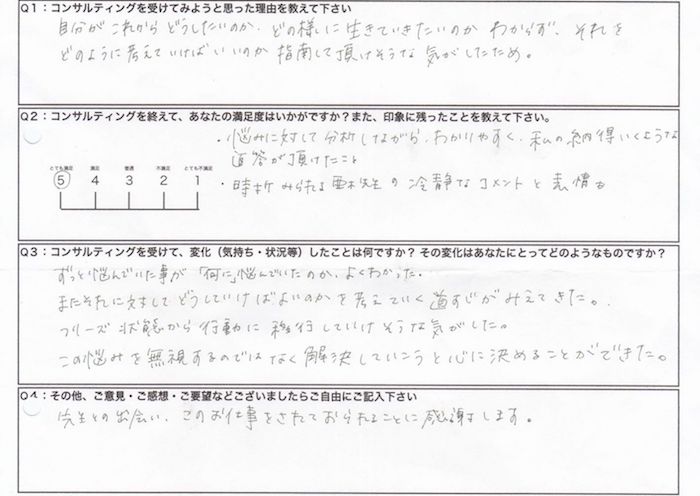 Q1：コンサルティングを受けてみようと思った理由を教えて下さい
自分がこれからどうしたいのか、どの様に生きていきたいのかわからず、それを
どのように考えていけばいいのか指南して頂けそうな気がしたため。
Q2：コンサルティングを終えて、あなたの満足度はいかがですか？また、印象に残ったことを教えて下さい。
・悩みに対して分析しながら、わかりやすく、私の納得いくような
返答が頂けたこと
とても満足 満足 普通 不満足 とても不満足
5 4 3 2 1
・時折みられる 先生の冷静なコメントと表情
Q3：コンサルティングを受けて、変化（気持ち・状況等）したことは何ですか？ その変化はあなたにとってどのようなものですか？
ずっと悩んでいた事が「何に」悩んでいたのか、よくわかった。
またそれに対してどうしていけばよいのかを考えていく道すじがみえてきた。
フリーズ状態から行動に移行していけそうな気がした。
この悩みを無視するのではなく解決していこうと心に決めることができた。
Q4：その他、ご意見・ご感想・ご要望などございましたらご自由にご記入下さい
先生との出会い、このお仕事をされておられることに感謝します。